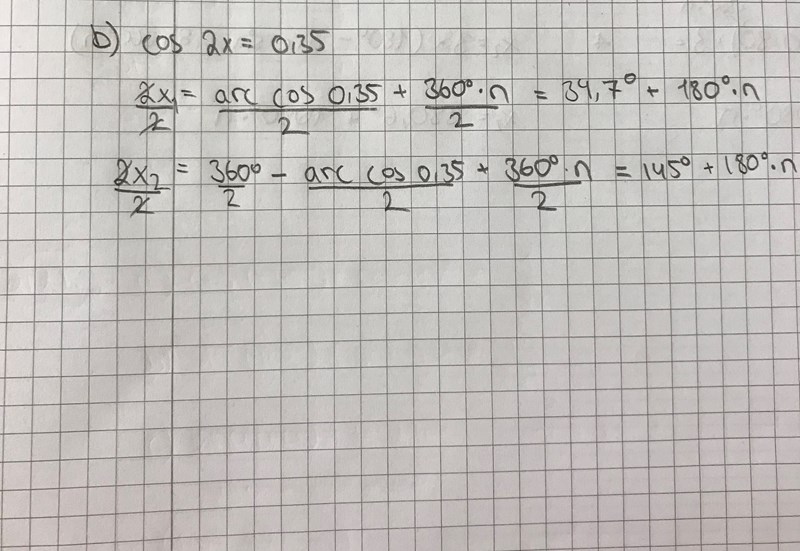 b) cos 2x = 0,35
2x₁/2 = arc cos 0,35/2 + 360°·n/2 = 34,7° + 180°·n
2x₂/2 = 360°/2 - arc cos 0,35/2 + 360°·n/2 = 145° + 180°·n